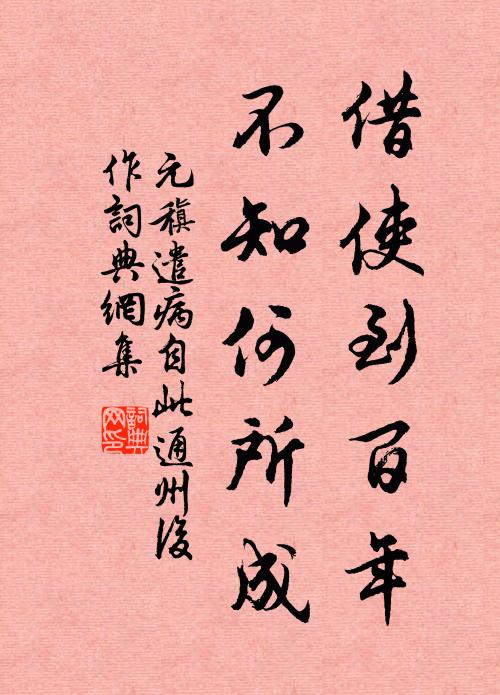 借使到百年
不知何所成
元稹遣病自此通州後
作詞典網集
詞典
网印